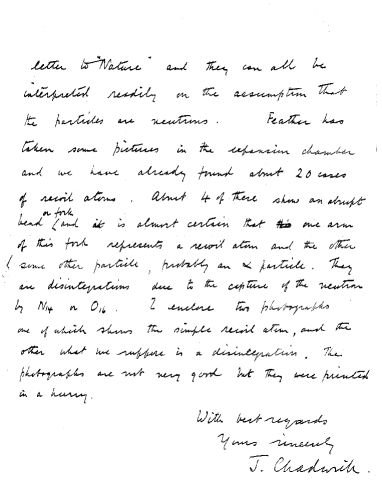 letter to "Nature" and they can all be
interpreted readily on the assumption that
the particles are neutrons. Feather has
taken some pictures in the expansion chamber
and we have already found about 20 cases
of recoil atoms. About 4 of these show an abrupt
bend or fork and it is almost certain that this one arm
of this fork represents a recoil atom and the other
some other particle, probably an α particle. They
are disintegrations due to the capture of the neutron
by N14 or O16. I enclose two photographs
one of which shows the simple recoil atom, and the
other what we suppose is a disintegration. The
photographs are not very good but they were printed
in a hurry.
With best regards
Yours sincerely
J. Chadwick.